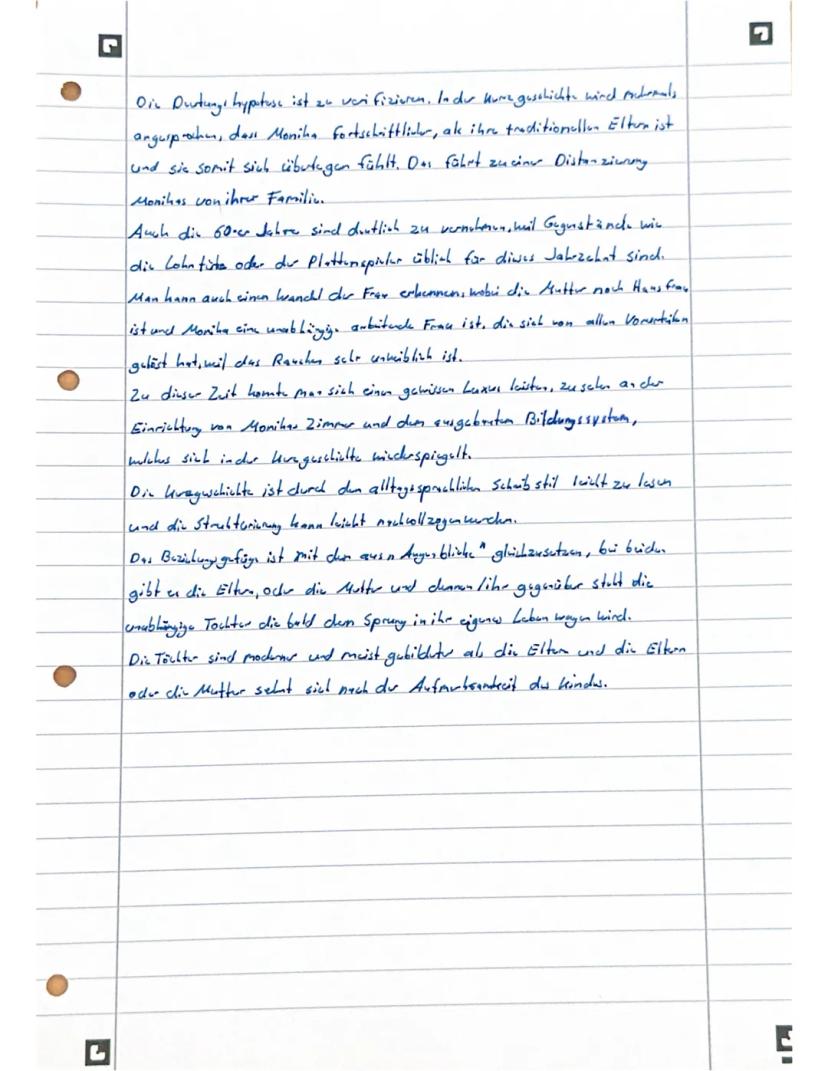 Die Deutungshypotese ist zu verifizieren. In der Kurzgeschichte wird mehrmals
angesprochen, dass Monika fortschrittlicher, als ihre traditionellen Eltern ist
und sie somit sich überlegen fühlt. Das führt zu einer Distanzierung
Monikas von ihrer Familie.
Auch die 60-er Jahre sind deutlich zu vernehmen, weil Gegenstände wie
die Lohntüte oder der Plattenspieler üblich für dieses Jahrzehnt sind.
Man kann auch einen Wandel der Frau erkennen, wobei die Mutter noch Hausfrau
ist und Monika eine unabhängige arbeitende Frau ist, die sich von allen Vorurteilen
gelöst hat, weil das Rauchen sehr unweiblich ist.
Zu dieser Zeit konnte man sich einen gewissen Luxus leisten, zu sehen an der
Einrichtung von Monikas Zimmer und dem ausgebauten Bildungssystem,
welches sich in der Kurzgeschichte wiederspiegelt.
Die Kurzgeschichte ist durch den alltagssprachlichen Schreibstil leicht zu lesen
und die Strukturierung kann leicht nachvollzogen werden.
Das Beziehungsgefüge ist mit dem aus „Augenblicke" gleichzusetzen, bei beiden
gibt es die Eltern, oder die Mutter und dennen/ihr gegenüber steht die
unabhängige Tochter die bald den Sprung in ihr eigenes Leben wagen wird.
Die Töchter sind moderner und meist gebildeter als die Eltern und die Eltern
oder die Mutter sehnt sich nach der Aufmerksamkeit des Kindes.